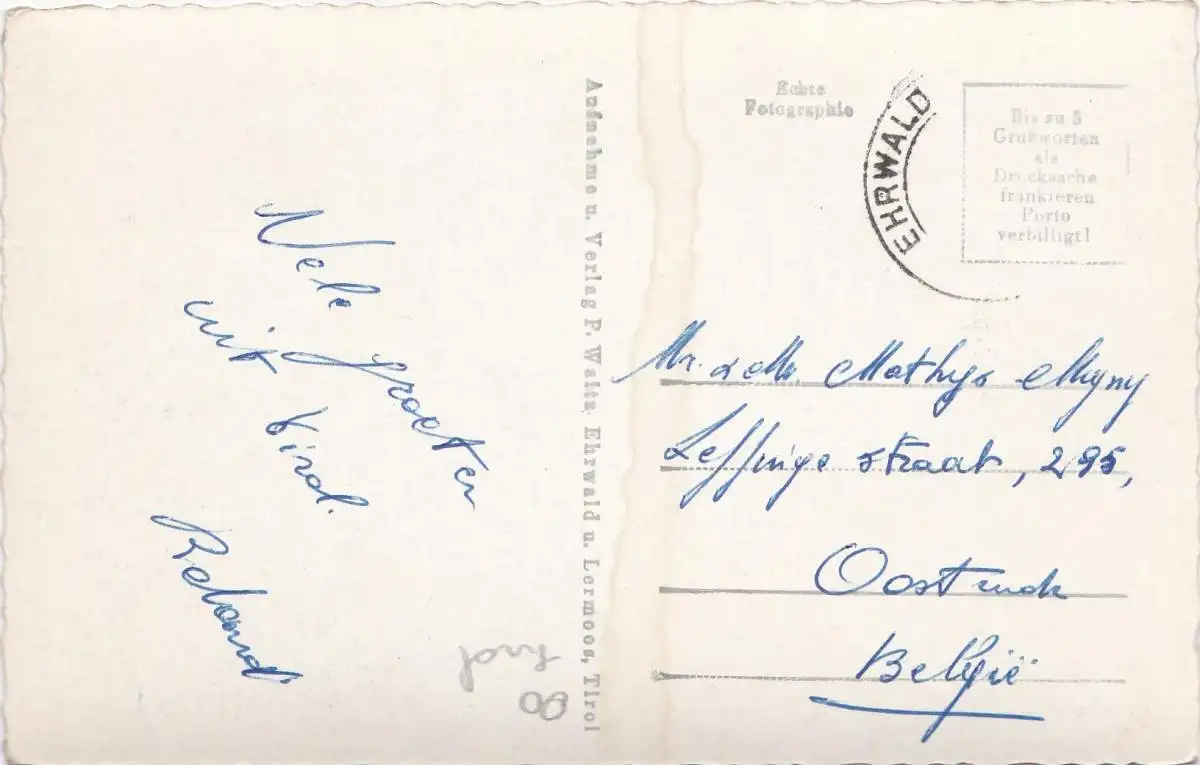 Vele groeten
uit Tirol.
Roland
Aufnehme u. Verlag P. Waitz Ehrwald u. Lermoos, Tirol
Echte
Fotographie
EHRWALD
Bis zu 5
Grußworten
als
Drucksache
frankieren
Porto
verbilligt!
Mr. & Me. Mathys
Leffinge straat, 295,
Oostende
België
90